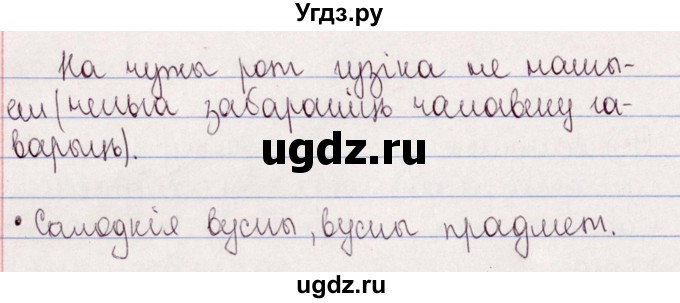 Угдз.ру
На чужы рот гузіка не нашы-
еш (нельга забараніць чалавеку га-
варыць).
ugdz.ru
• Салодкія вусны, вусны прадмет.
ugdz.ru